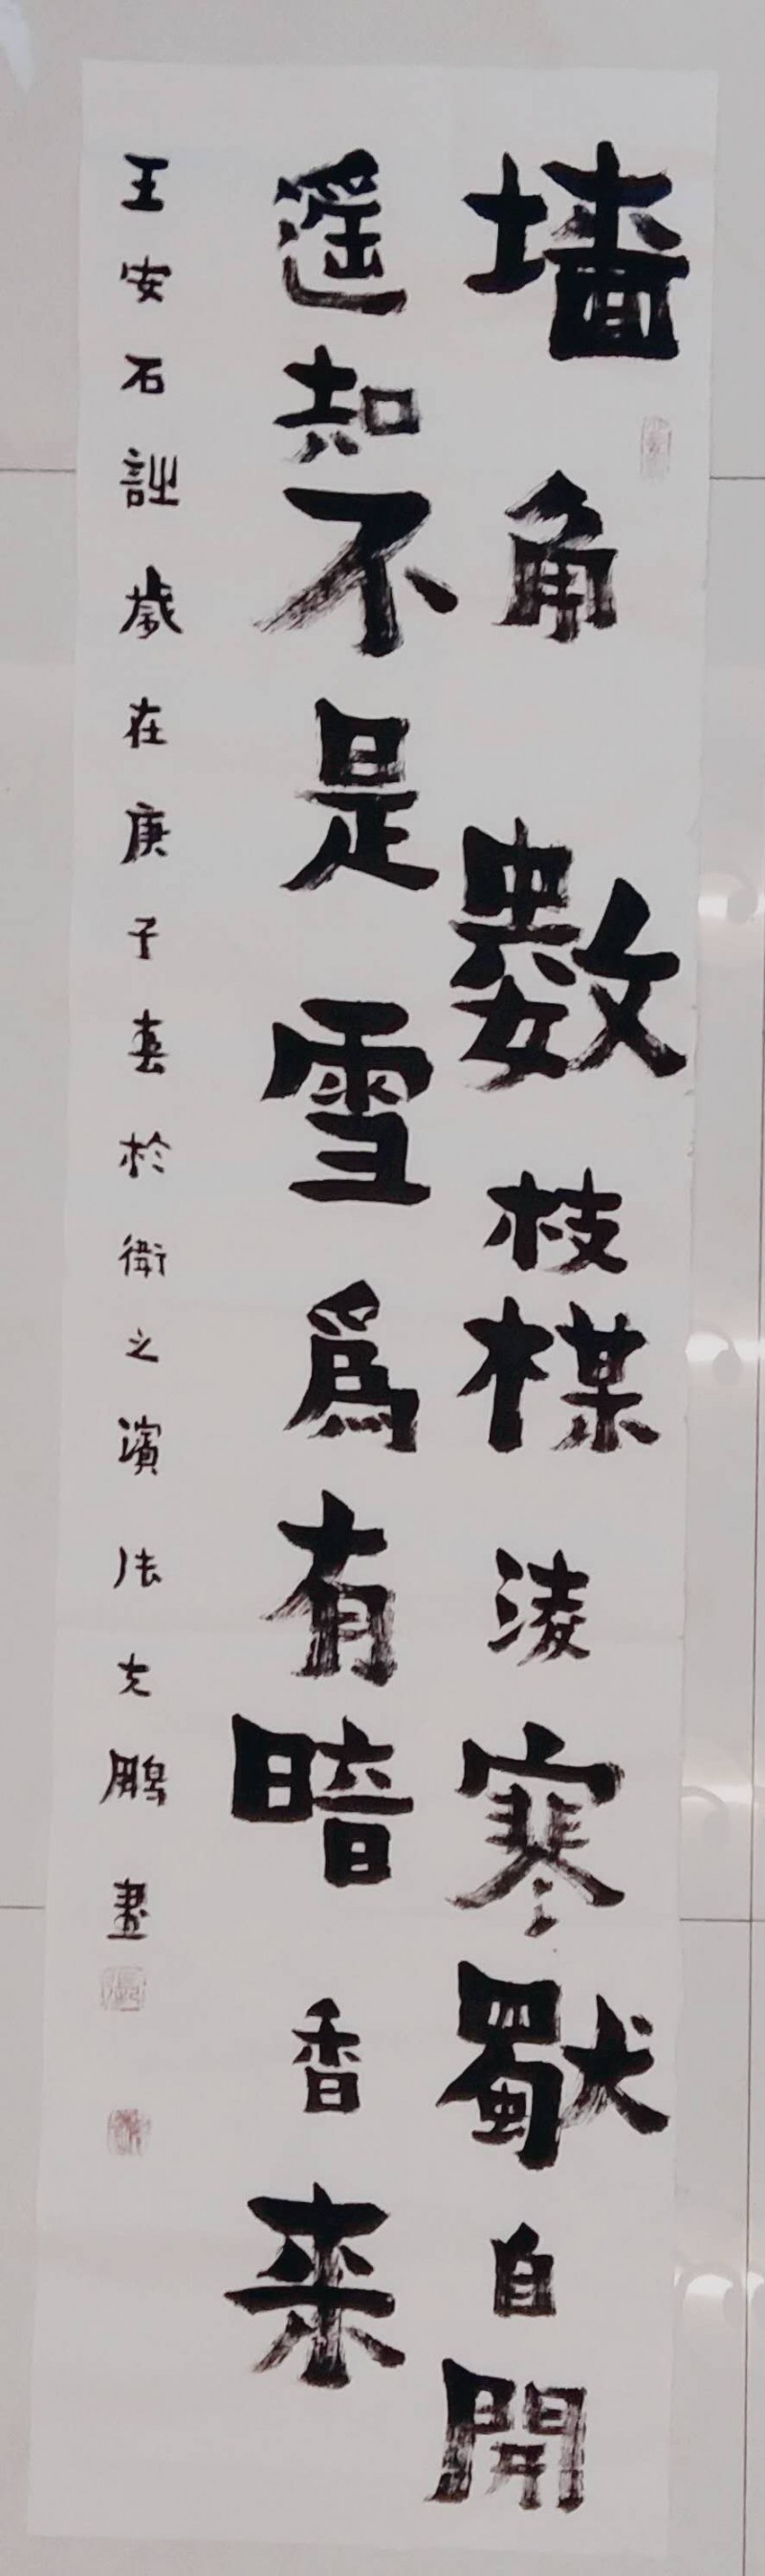 墙角數枝楳淩寒獨自開
遥知不是雪爲有暗香来
王安石詩歲在庚子春於衛之濱鵬書